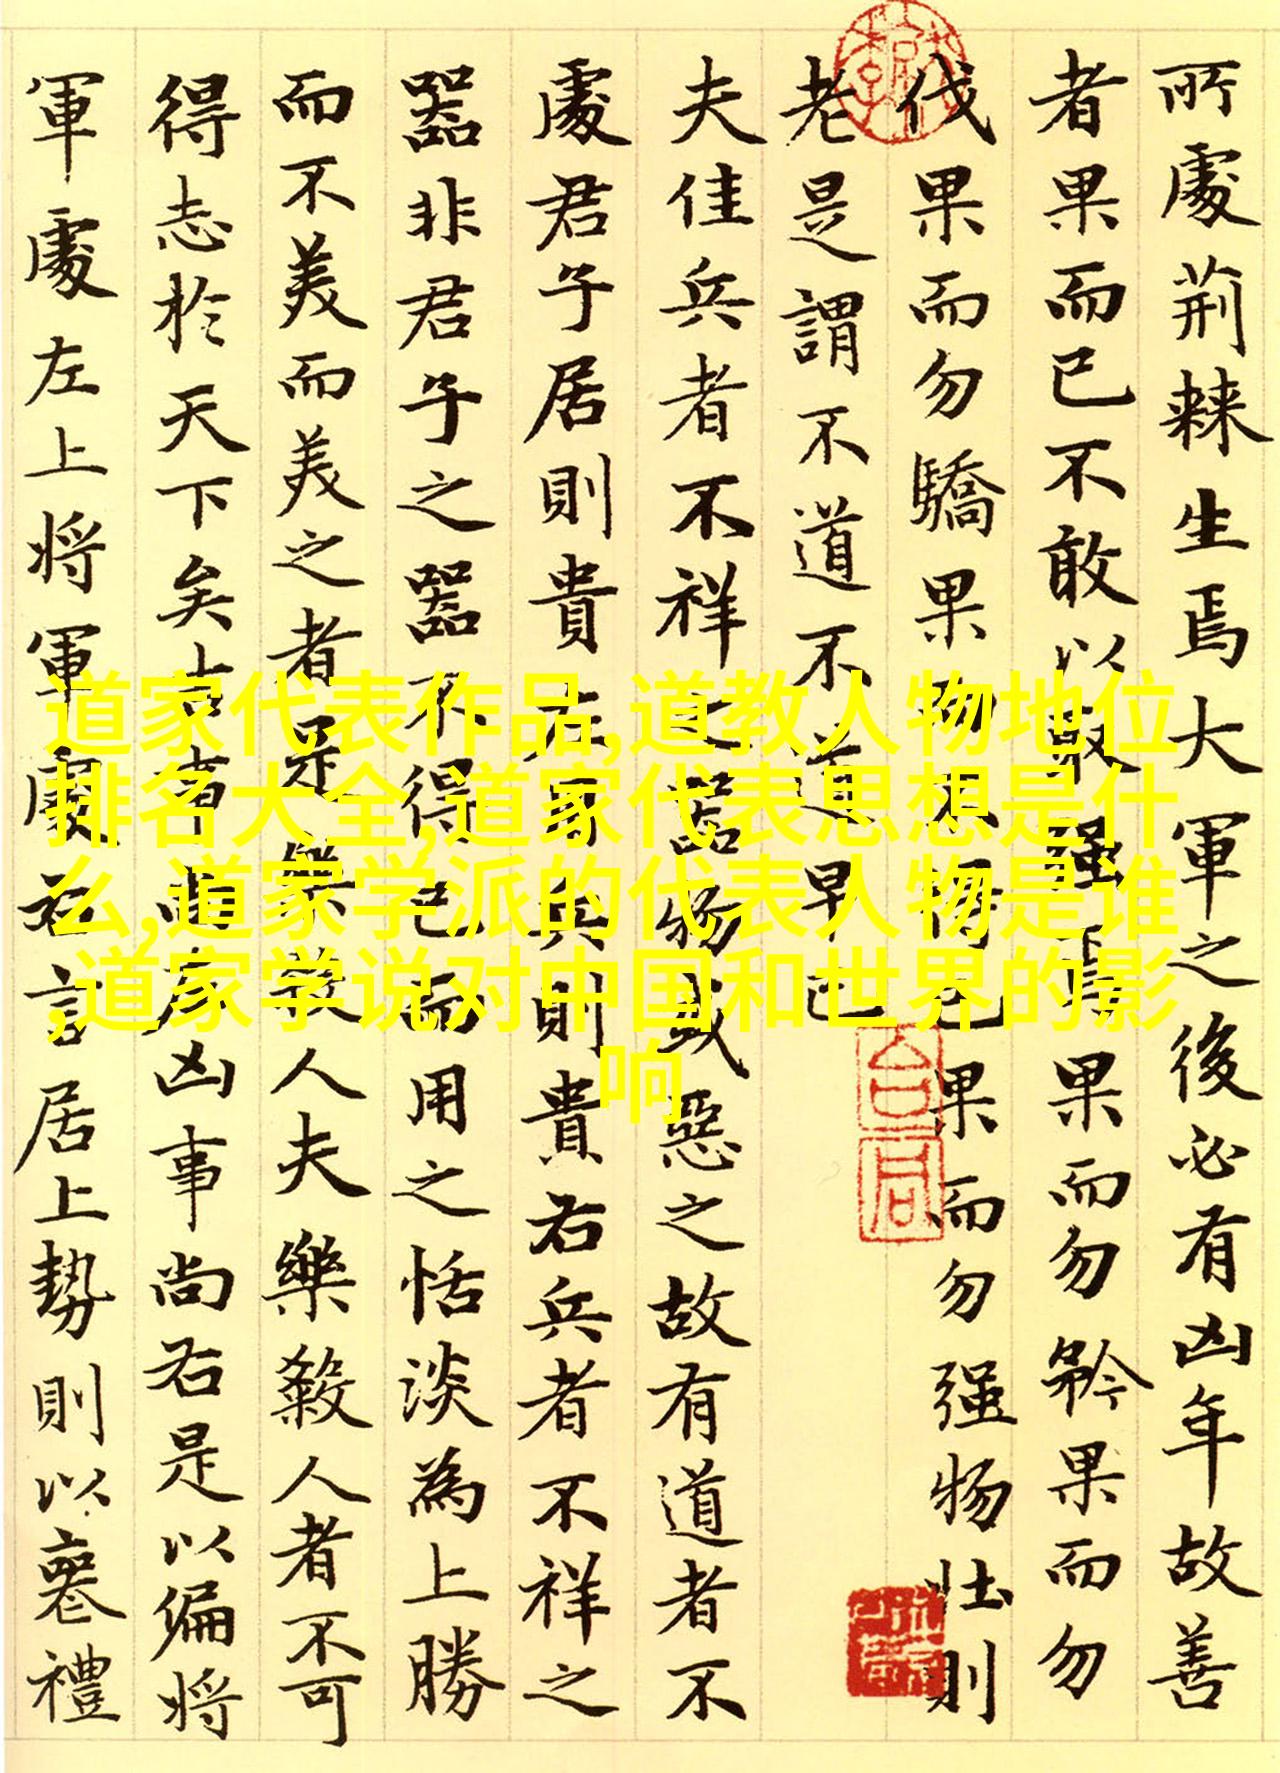 所處荊棘生焉大軍之後必有凶年故善
者果而已不敢以取强焉果而勿矜果而勿
伐果而勿驕果不得已果而勿强物壯則
老是謂不道不道早已
夫佳兵者不祥之器物或惡之故有道者不
處君子居則貴左用兵則貴右兵者不祥之
器非君子之器不得已而用之恬淡為上勝
而不美而美之者是樂殺人夫樂殺人者不可
得志於天下矣吉事尚左凶事尚右是以偏將
軍處左上將軍處右言居上勢則以喪禮
道家代表作品,道教人物地位
排名大全,道家代表思想是什
么,道家学派的代表人物是谁
,道家学说对中国和世界的影
响